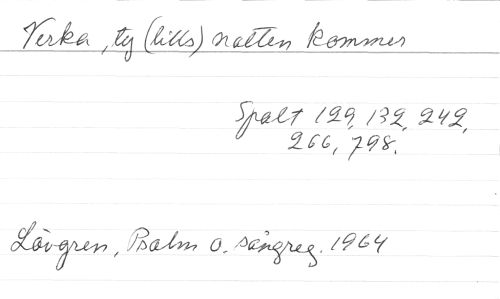 Verka, ty (tills) natten kommer
Spalt 129, 132, 242,
266, 798.
Lövgren, Psalm o. sångreg. 1964